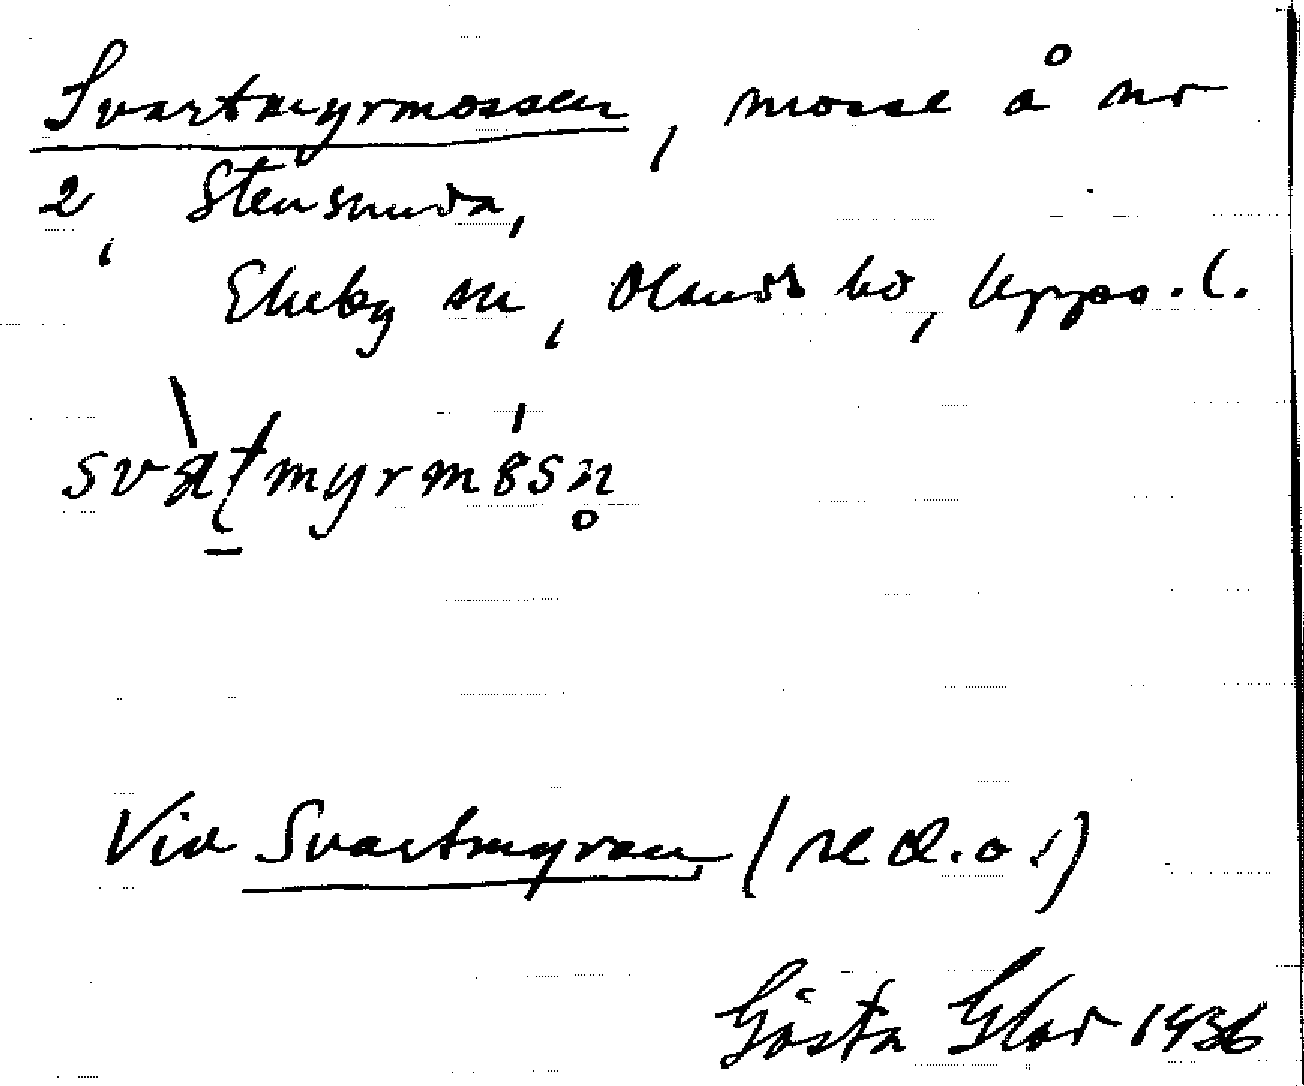 Svartmyrmossen, mosse å nr
2, Stensunda,
Ekeby sn, Olands hd, Upps. l.
Vid Svartmyran (se d. o.)
Gösta 1936